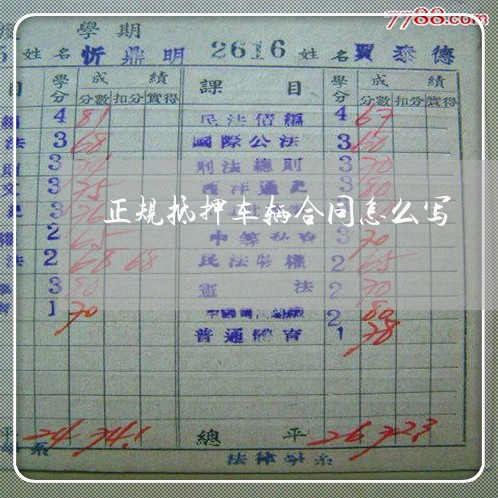 7788.com
學期
姓名 忻鼎明 2616 姓名 賈泰德
目 學分 成績 課目 學分 成績
分數 扣分 實得 分數 扣分 實得
4 81 民法債編 4 67
法 3 68 國際公法 3 60
3 刑法總則 3 70
文 3 75 西洋通史 3 80
正规抵押车辆合同怎么写
2 65 3 70
法 2 68 68 民法物權 2 65
3 80 憲法 2 70
1 70 2 80
普通體育 1 78
平 24 74.1 總平 26 72.3
系 法律學系